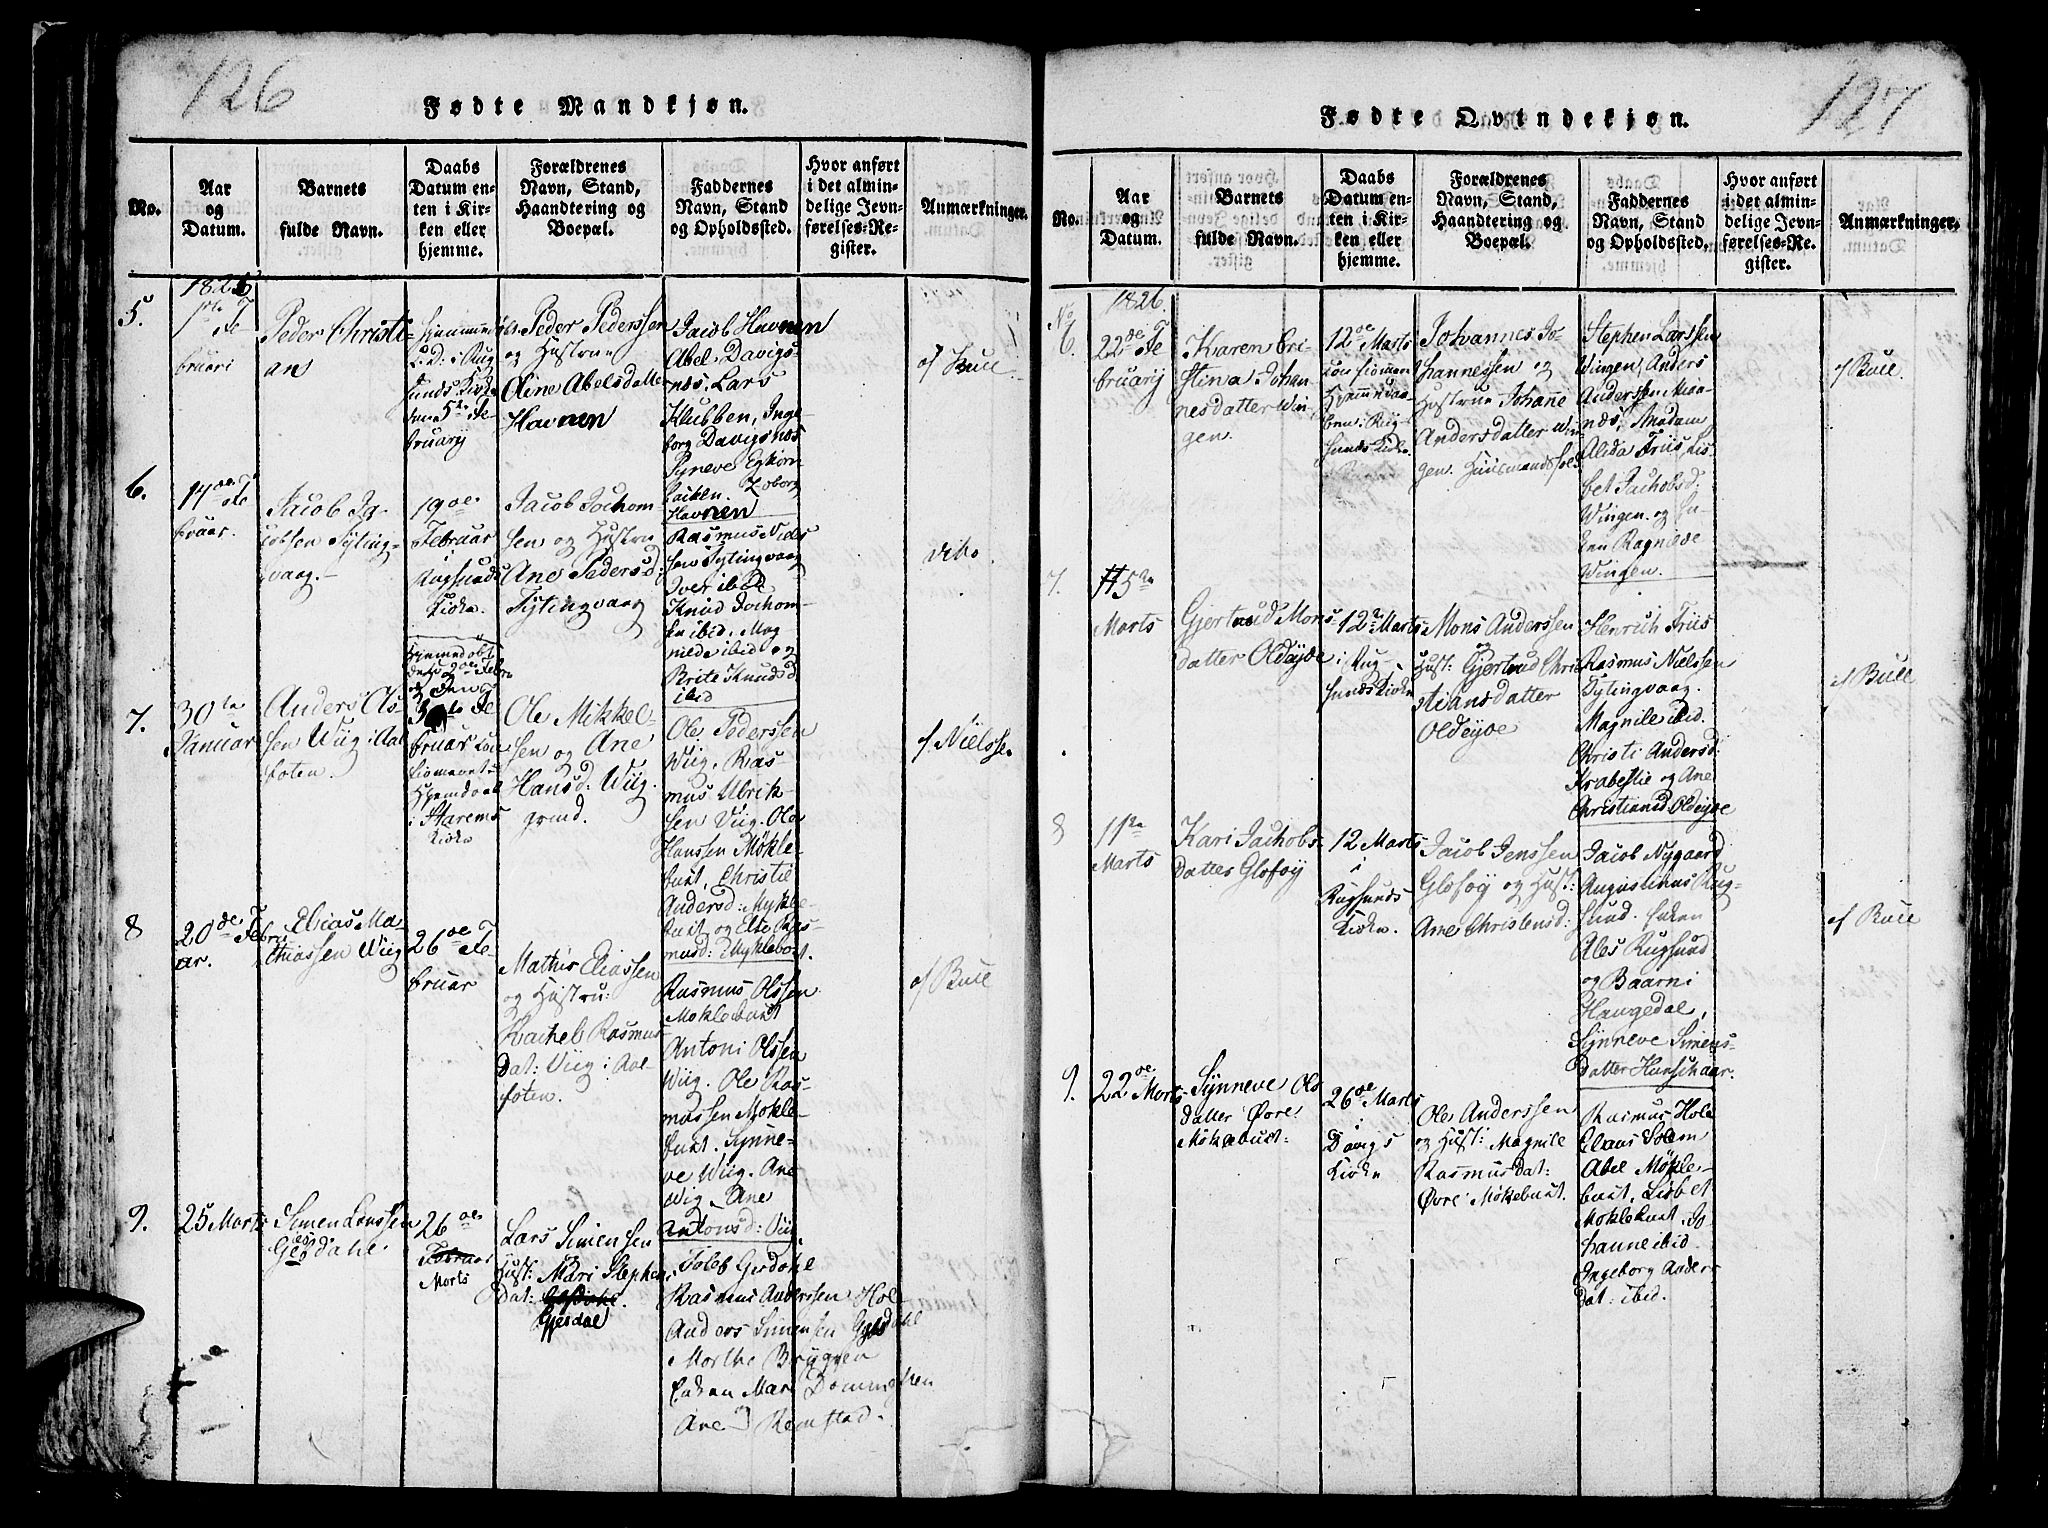 126
Fødte Mandkjøn.
No.
Aar
og
Datum.
Barnets
fulde Navn.
Daabs
Datum en-
ten i Kir-
ken eller
hjemme.
Forældrenes
Navn, Stand,
Haandtering og
Boepæl.
Faddernes
Navn, Stand
og Opholdssted.
Hvor anført
i det almin-
delige Jevn-
førelses-Re-
gister.
Anmærkninger.
1826
5.
Fe
bruari
Peder Christi-
ans
Hjemmedøbt
i Rug
sunds Kirke
den 5te Fe-
bruarij
Peder Pederssen
og Hustrue
Aline Abelsdatter
Havnen
Jacob Havnen
Abel Davigs-
næs. Lars
Klubben, Inge-
borg Davigsnæs
Synneve Egkorn-
Havnen
af Bull.
6.
14de Fe
bruar.
Jacob Ja-
cobsen Tyting-
vaag.-
19de
Februar
i
Rugsunds
Kirke.
Jacob Jochom-
sen og Hustru
Ane Pedersd:
Tytingvaag
Rasmus Niels
sen Tytingvaag
Iver ibid
Knud Jochom-
sen ibid. Mag
nilde ibid og
Brite Knudsd
ibid
dito.
7.
30te
Januar
Anders Ols-
sen Wiig i Aal
foten.
Hjemmedøbt
Febru
og
Fe
bruar
Hjemdaab
i Starems
Kirke
Ole Mikkel-
sen og Ane
Hansd: Wiig-
grind.
Ole Pederssen
Wiig. Ras-
mus Ulrik-
sen Viig. Ole
Hanssen Møkle-
bust, Christie
Andersd: Mykle-
bust og Else Ras-
musd: Myklebost.
af Nielssen
8
20de Febru
ar.
Elias Ma-
thiassen Wiig
26de Fe-
bruar
Mathis Eliassen
og Hustru:
Rachel Rasmus
dat: Viig i Aal-
foten.
Rasmus Olssen
Moklebust
Antoni Olssen
Wiig. Ole Ras-
mussen Mokle-
bust. Synne-
ve Wiig. Ane
Wiig. Ane
Antonsd: Viig.
af Bull
9.
25 Marts
Simen Larssen
Gjesdahl
26de
Februar
Marts
Lars Simensen
Hust: Mari Stephens
dat: Gjesdahl.
Gjesdal
Tolleb Gjesdahl
Rasmus Anderssen Hol-
Anders Simensen Gjesdahl
Marthe Bryggen
Enken Mari Dommersten
Ane Remstad.
127
Fødte Qvindekjøn.
No.
Aar
og
Datum.
Barnets
fulde Navn.
Daabs
Datum en-
ten i Kir-
ken eller
hjemme.
Forældrenes
Navn, Stand,
Haandtering og
Boepæl.
Faddernes
Navn, Stand
og Opholdssted.
Hvor anført
i det almin-
delige Jevn-
førelses-Re-
gister.
Anmærkninger.
1826.
No
6.
22de Fe
bruarij
Karen Cri-
stina Johan
nesdatter Win-
gen.
12de Marts
confirmeret
Hjemmedaa-
ben i Rug-
sunds Kirke.
Johannes Jo-
hannessen og
Hustrue Johane
Andersdatter Win
gen. Huusmandsfolk
Stephen Larssen
Wingen, Anders
Anderssen Maa-
næs, Madam
Alida Friis, Lis-
bet Jachobsd:
Wingen og En-
ken Ragnilde
Wingen.
af Bull.
7.
5te
Marts
Gjertrud Mons-
datter Oldeyde
12te Marts
i Rug-
sunds Kirke
Mons Anderssen
og
Hust: Gjertrud Chri
stiansdatter
Oldeyde
Henrich Friis
Rasmus Nielssen
Tytingvaag.
Magnile ibid.
Christi Andersd:
Krabestie og Ane
Christiansd: Oldeyde
af Bull
8
11te
Marts
Kari Jachobs-
datter Glosøy
12 Marts
i
Rugsunds
Kirke.
Jacob Jenssen
Glosøy og Hust:
Ane Christensd:
Jacob Nygaard
Augustinus Rug-
sund. Enken
Ales Rugsund
og Baarni
Haugedal,
Synneve Simens-
datter Hunschaar.
af Bull
9.
22de Marts
Synneve Ols
datter Øvre
Møklebust.
26de Marts
i
Davigs
Kirke
Ole Anderssen
og Hust: Magnile
Rasmusdat:
Øvre Møklebust.
Rasmus Hole
Claus Solem
Abel Møkle-
bust, Lisbet
Moklebust. Jo-
hanne ibid.
Ingeborg Anders
dat: ibid.